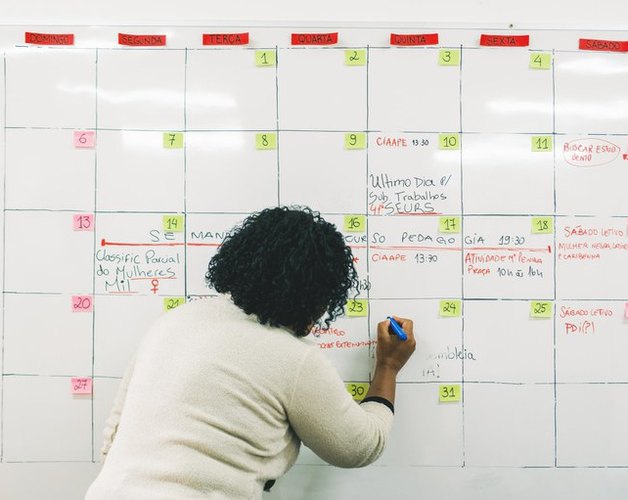 DOMINGO SEGUNDA TERÇA QUARTA QUINTA SEXTA SÁBADO
1 2 3 4
6 7 8 9 10 11
CIAAPE 13:30
BUSCAR ESTUD
Último Dia p/
Sub Trabalhos
SEURS
13 14 16 17 18
SE MANA SO PEDAGOGIA 19:30
Classific Parcial
do Mulheres
Mil ♀
CIAAPE 13:30
ATIVIDADE Mª PENHA
PRAÇA 10h às 16h
SÁBADO LETIVO
MULHER NEGRA LATINO
E CARIBENHA
20 21 23 24 25
SÁBADO LETIVO
PDI(?)
27 30 31